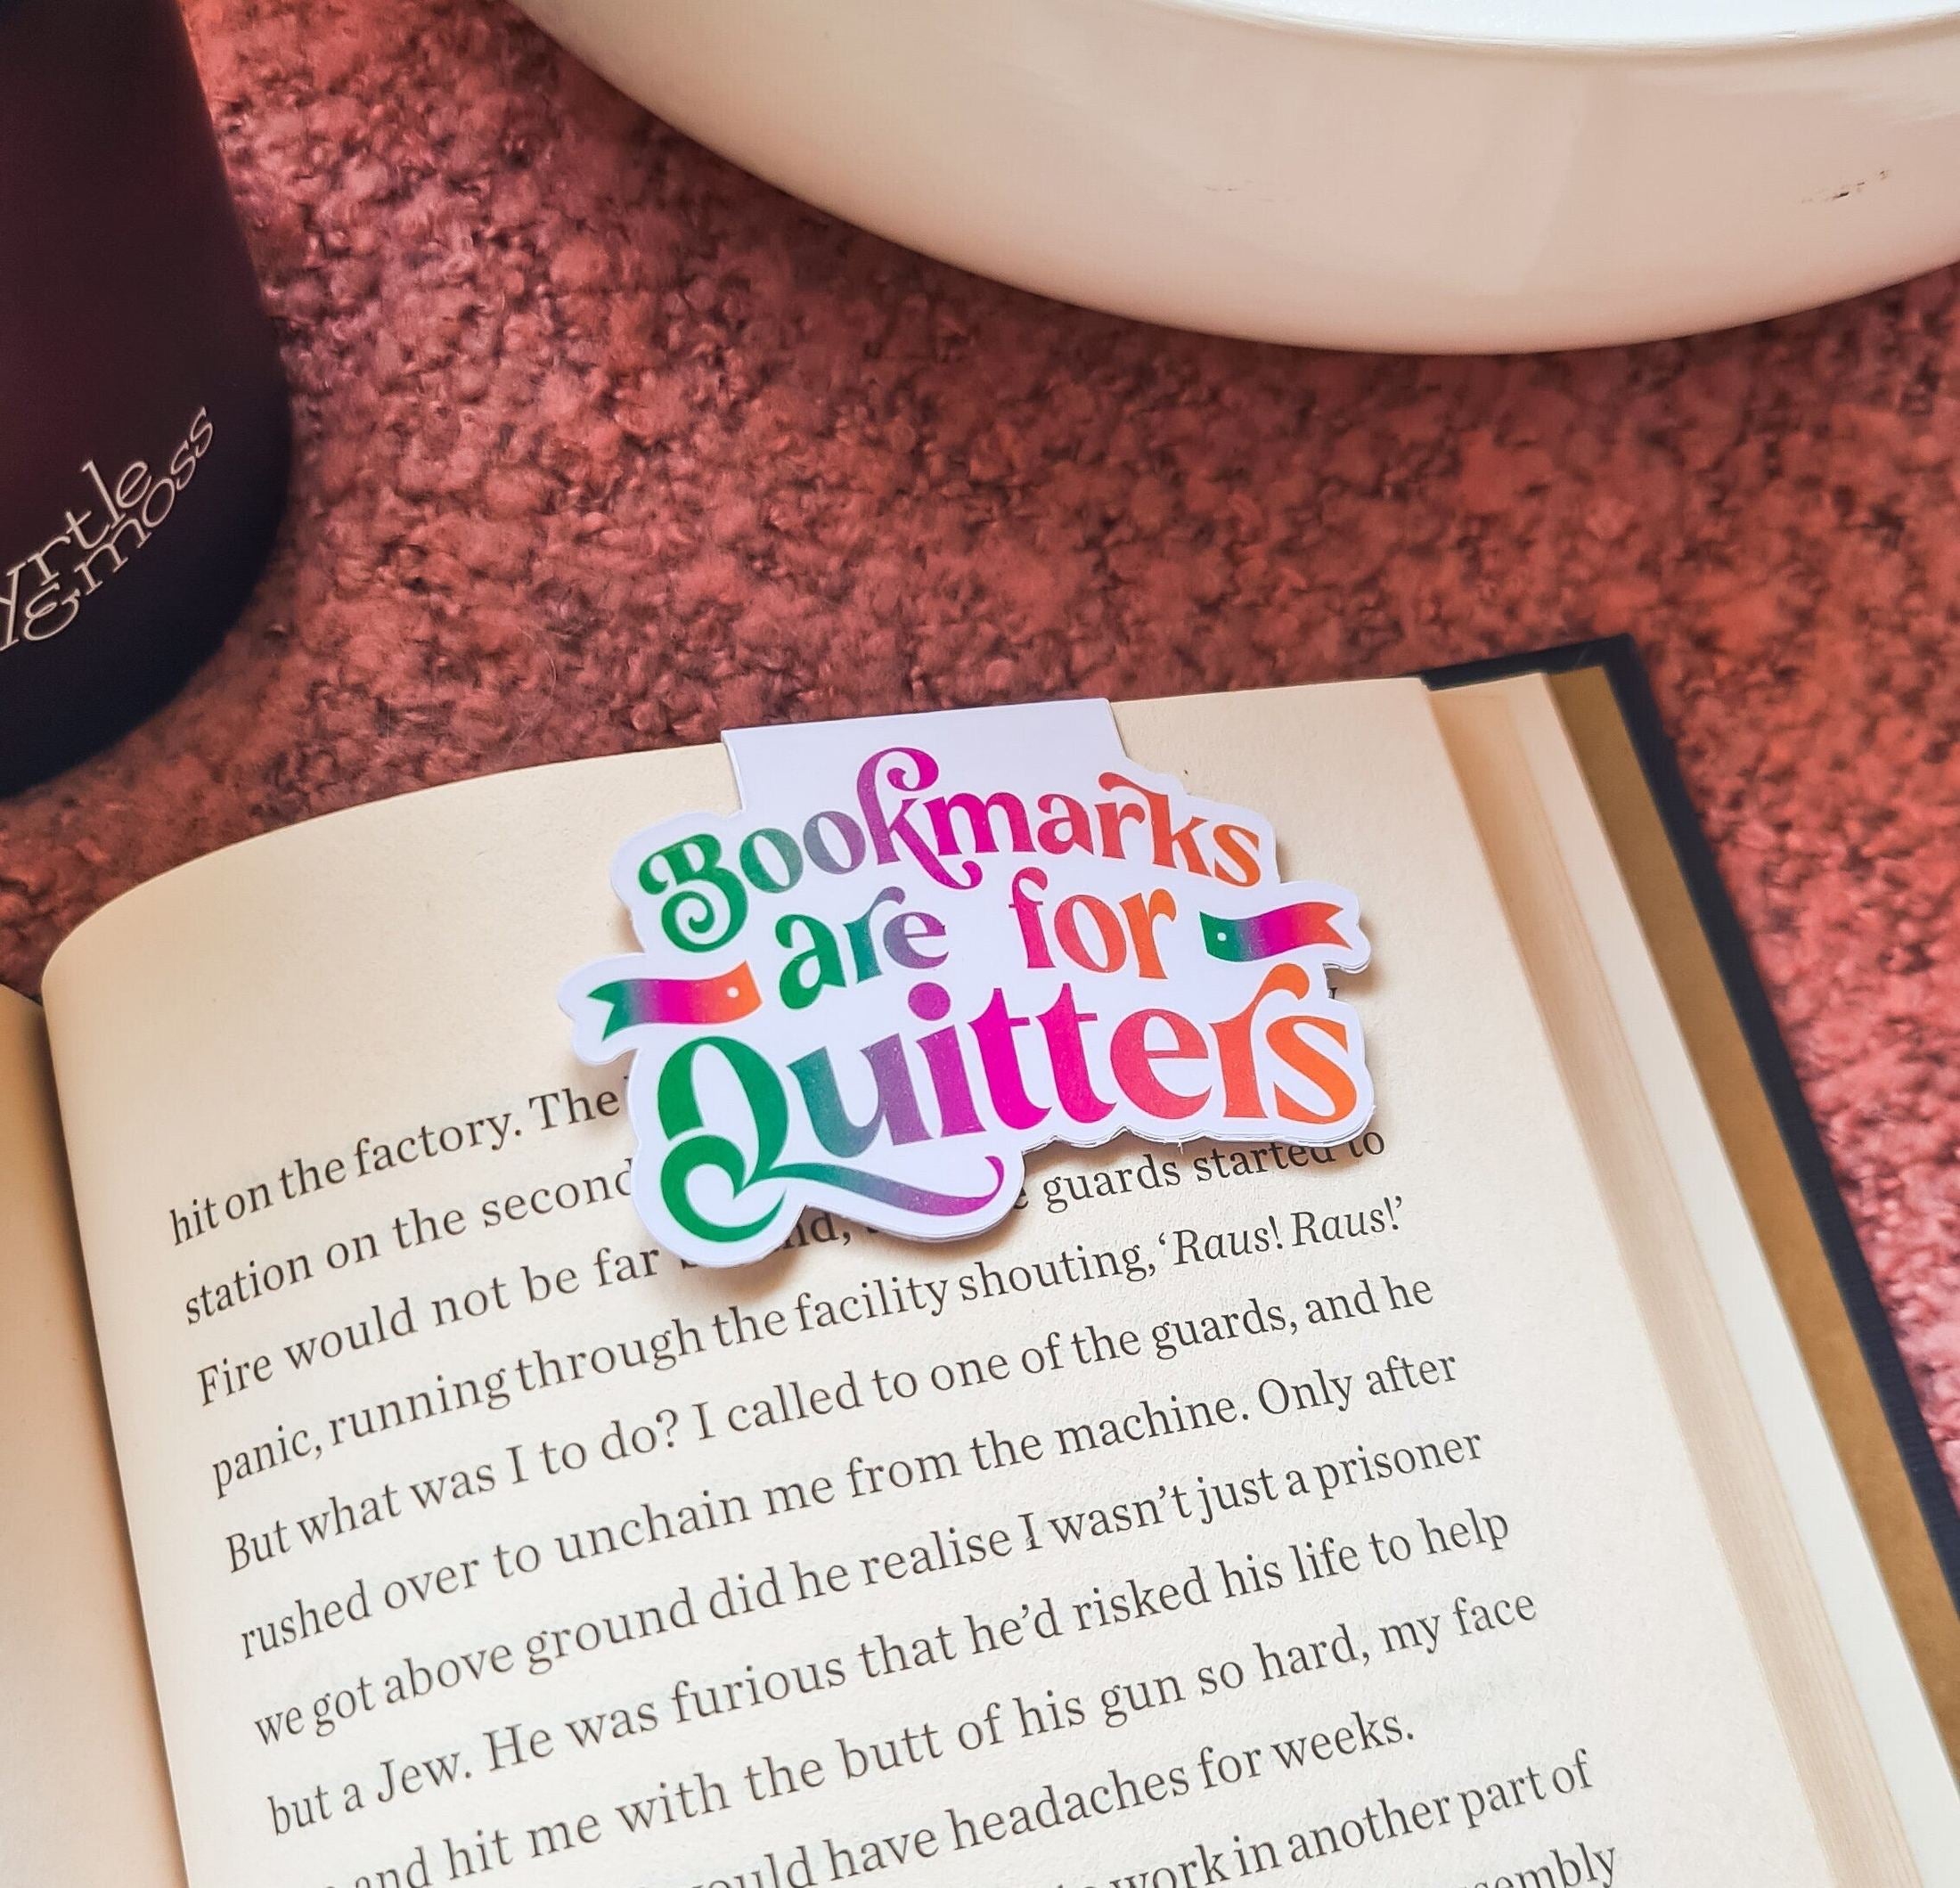 yrtle
&moss
Bookmarks
are for
Quitters
hit on the factory. The
station on the second
Fire would not be far guards started to
panic, running through the facility shouting, ‘Raus! Raus!’
But what was I to do? I called to one of the guards, and he
rushed over to unchain me from the machine. Only after
we got above ground did he realise I wasn’t just a prisoner
but a Jew. He was furious that he’d risked his life to help
and hit me with the butt of his gun so hard, my face
have headaches for weeks.
work in another part of